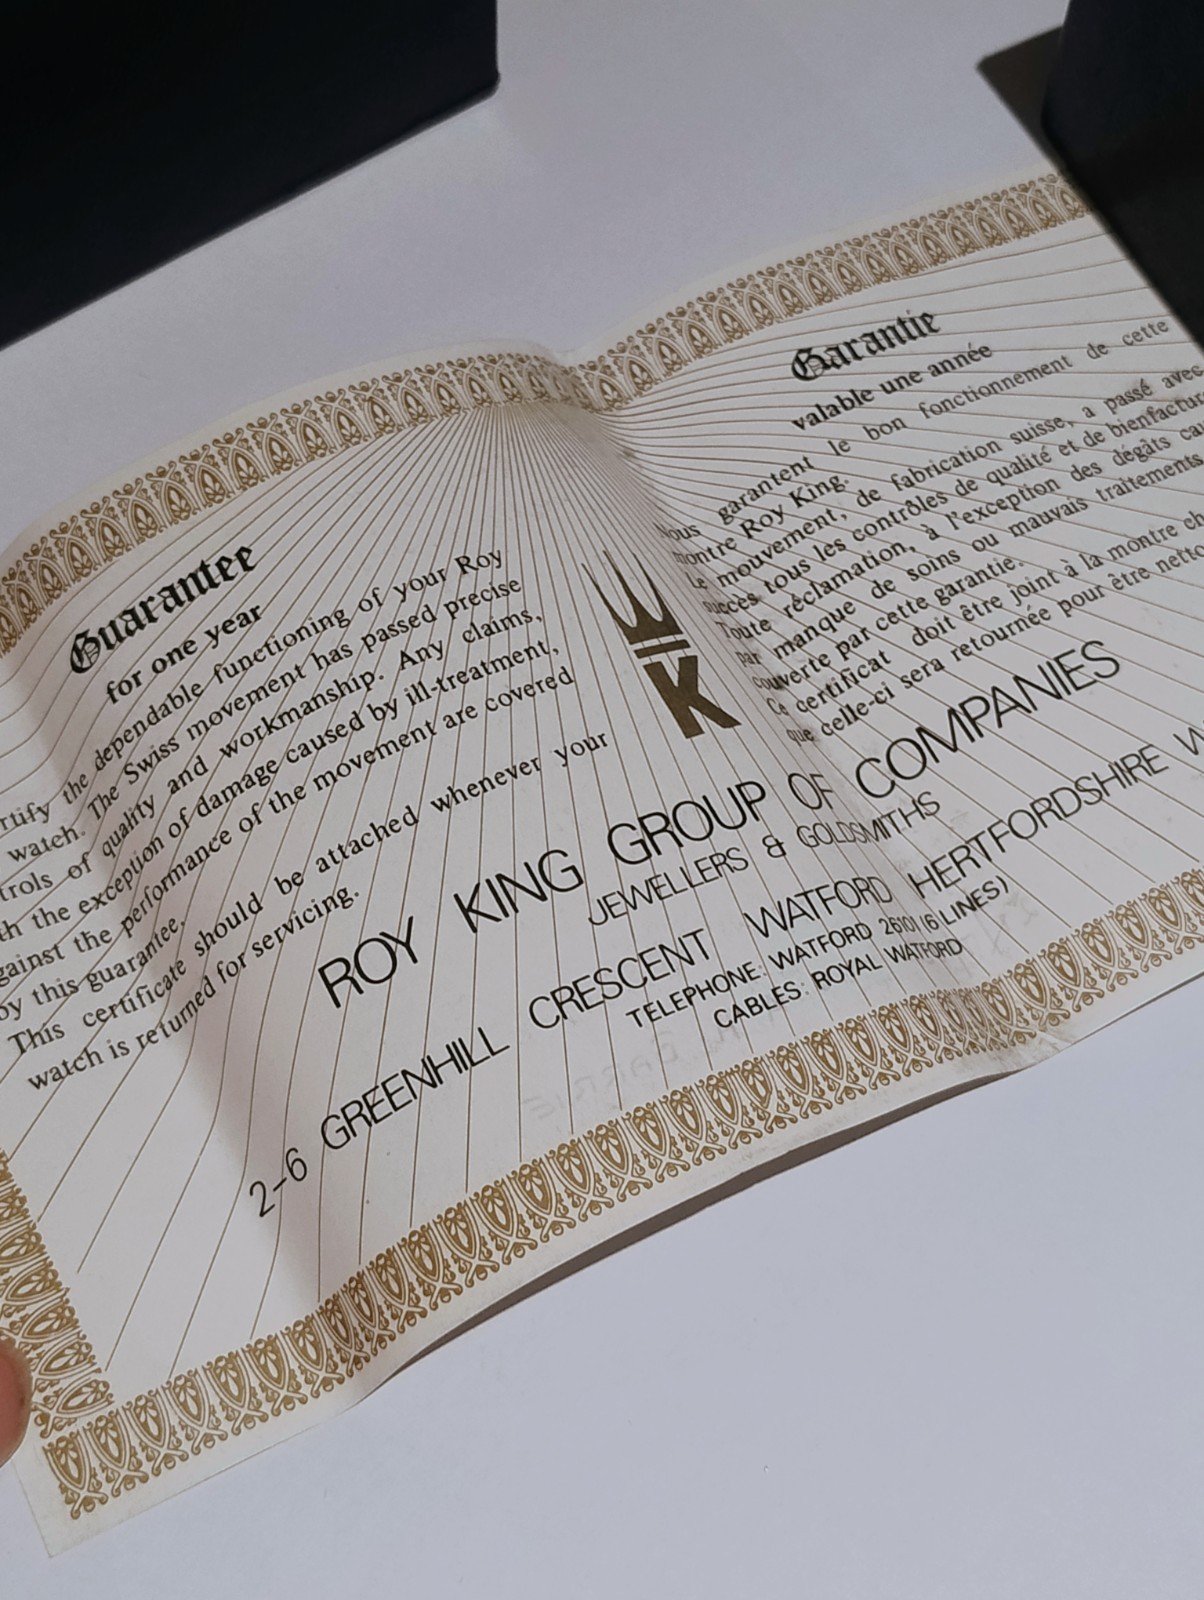 Guarantee
for one year
the dependable functioning of your Roy
watch. The Swiss movement has passed precise
of quality and workmanship. Any claims,
the exception of damage caused by ill-treatment,
the performance of the movement are covered
by this guarantee.
This certificate should be attached whenever your
watch is returned for servicing.
K
Garantie
valable une année
garantent le bon fonctionnement de cette
montre Roy King.
Le mouvement, de fabrication suisse, a passé avec
succès tous les contrôles de qualité et de
Toute réclamation, à l'exception des dégâts
par manque de soins ou mauvais traitements
couverte par cette garantie.
Ce certificat doit être joint à la montre
que celle-ci sera retournée pour être
ROY KING GROUP OF COMPANIES
JEWELLERS & GOLDSMITHS
2-6 GREENHILL CRESCENT WATFORD HERTFORDSHIRE
TELEPHONE: WATFORD 26101 (6 LINES)
CABLES: ROYAL WATFORD